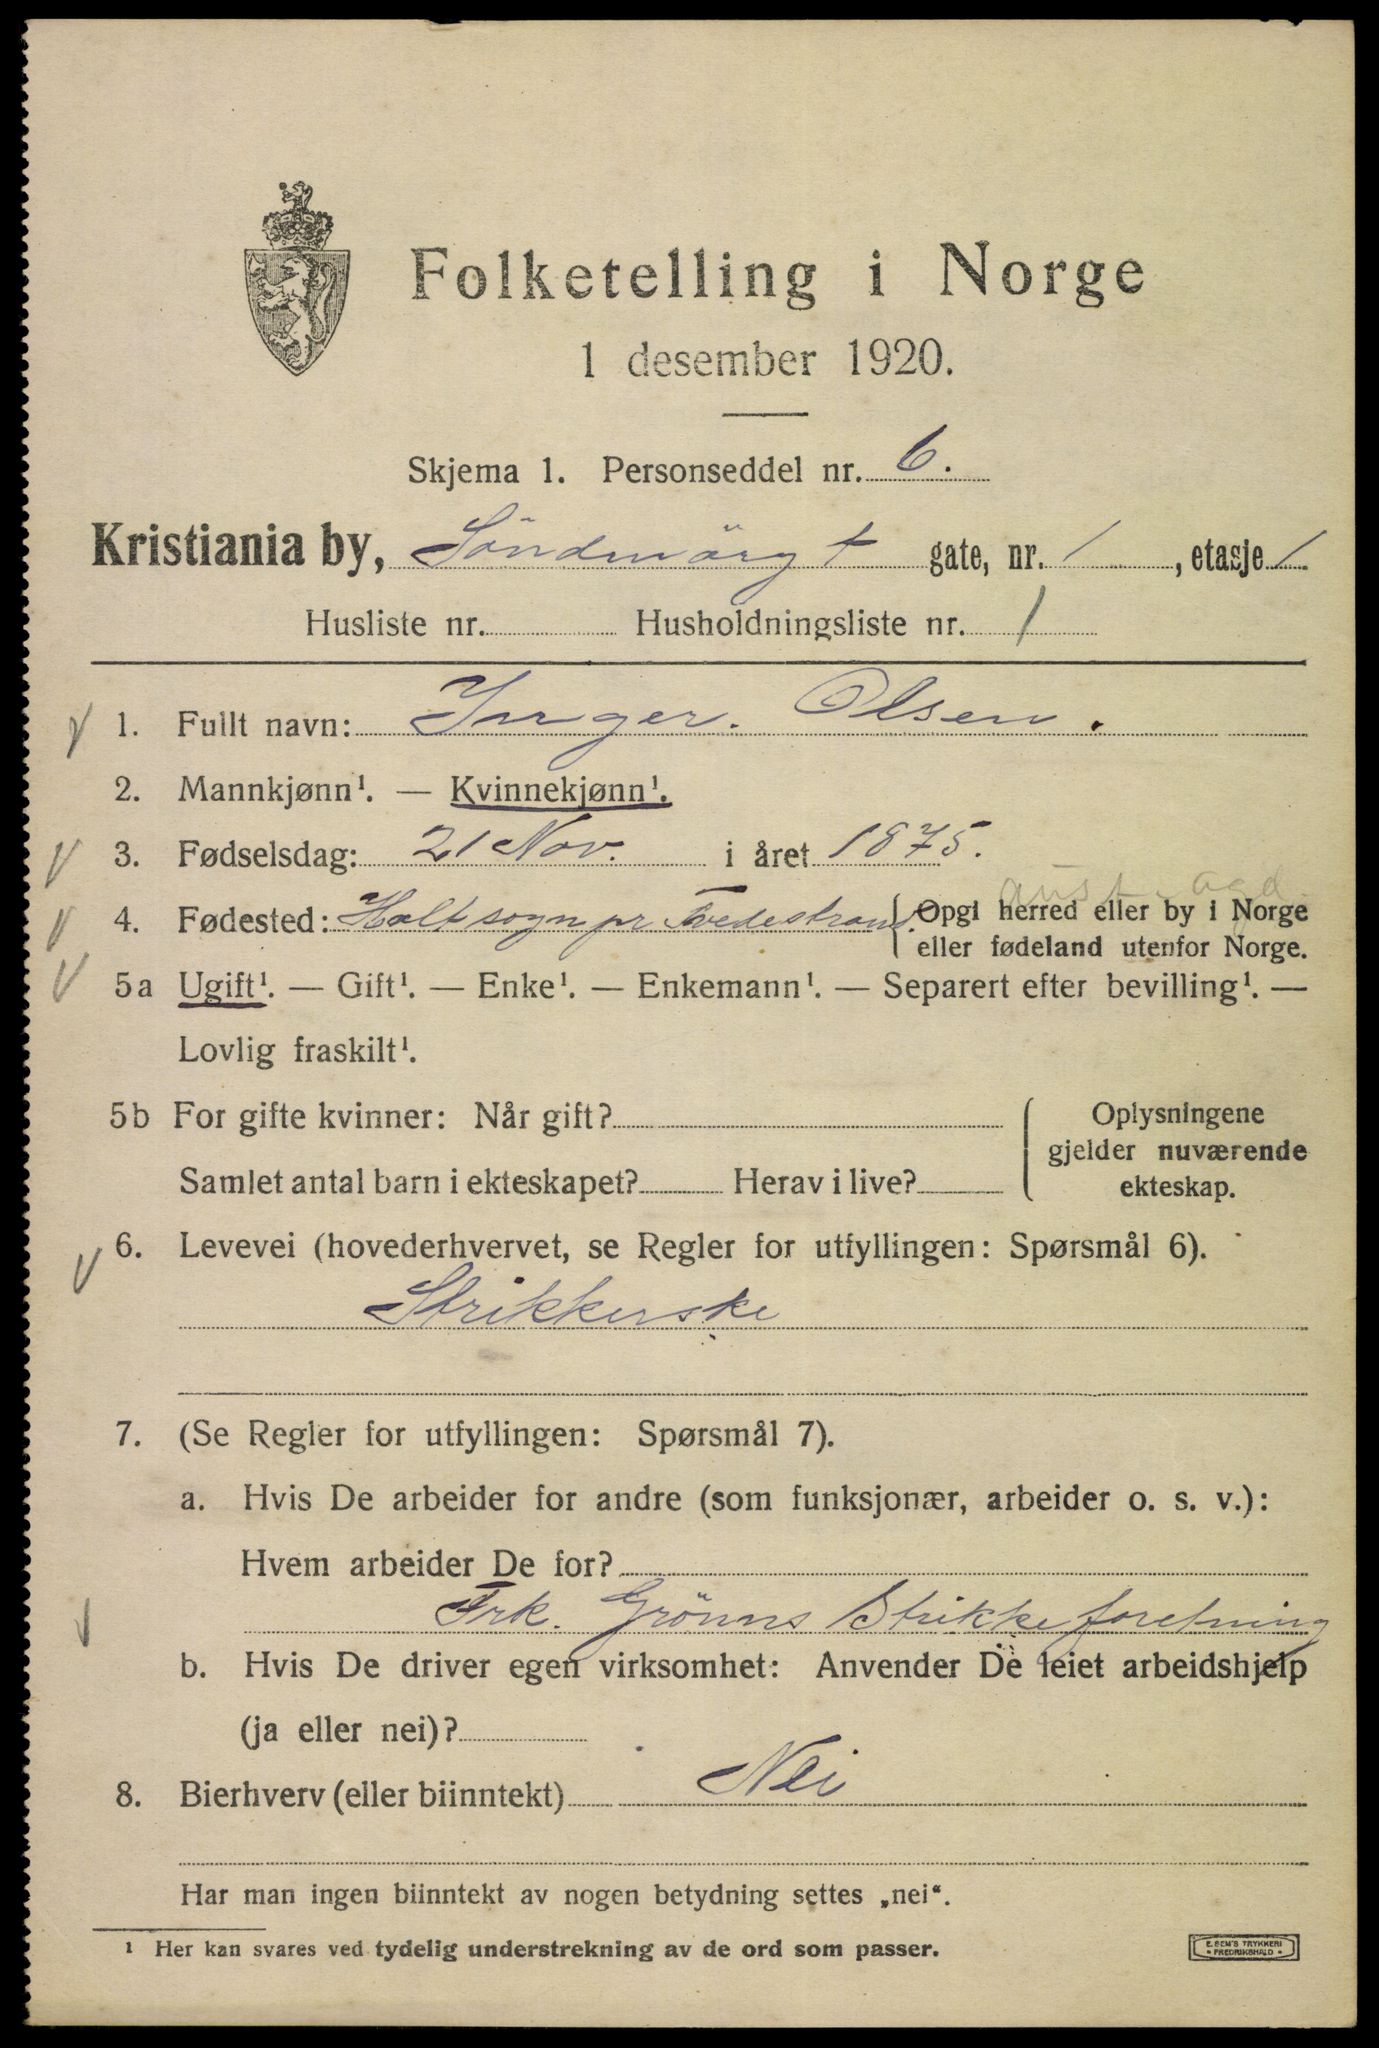 Folketelling i Norge
1 desember 1920.
Skjema 1. Personseddel nr. 6.
Kristiania by, Söndmörgt gate, nr. 1, etasje 1
Husliste nr. Husholdningsliste nr. 1
1. Fullt navn: Inger. Olsen.
2. Mannkjønn¹. — Kvinnekjønn¹.
3. Fødselsdag: 21 Nov. i året 1875.
aust-agd.
4. Fødested: Holt sogn pr Tvedestrand. { Opgi herred eller by i Norge
eller fødeland utenfor Norge.
5a Ugift¹. — Gift¹. — Enke¹. — Enkemann¹. — Separert efter bevilling¹. —
Lovlig fraskilt¹.
5b For gifte kvinner: Når gift? { Oplysningene
gjelder nuværende
Samlet antal barn i ekteskapet? Herav i live? ekteskap.
6. Levevei (hovederhvervet, se Regler for utfyllingen: Spørsmål 6).
Strikkerske
7. (Se Regler for utfyllingen: Spørsmål 7).
a. Hvis De arbeider for andre (som funksjonær, arbeider o. s. v.):
Hvem arbeider De for?
Frk. Grönns Strikkeforetning
b. Hvis De driver egen virksomhet: Anvender De leiet arbeidshjelp
(ja eller nei)?
8. Bierhverv (eller biinntekt) Nei
Har man ingen biinntekt av nogen betydning settes „nei“.
¹ Her kan svares ved tydelig understrekning av de ord som passer.
E. SEM'S TRYKKERI
• FREDRIKSHALD •